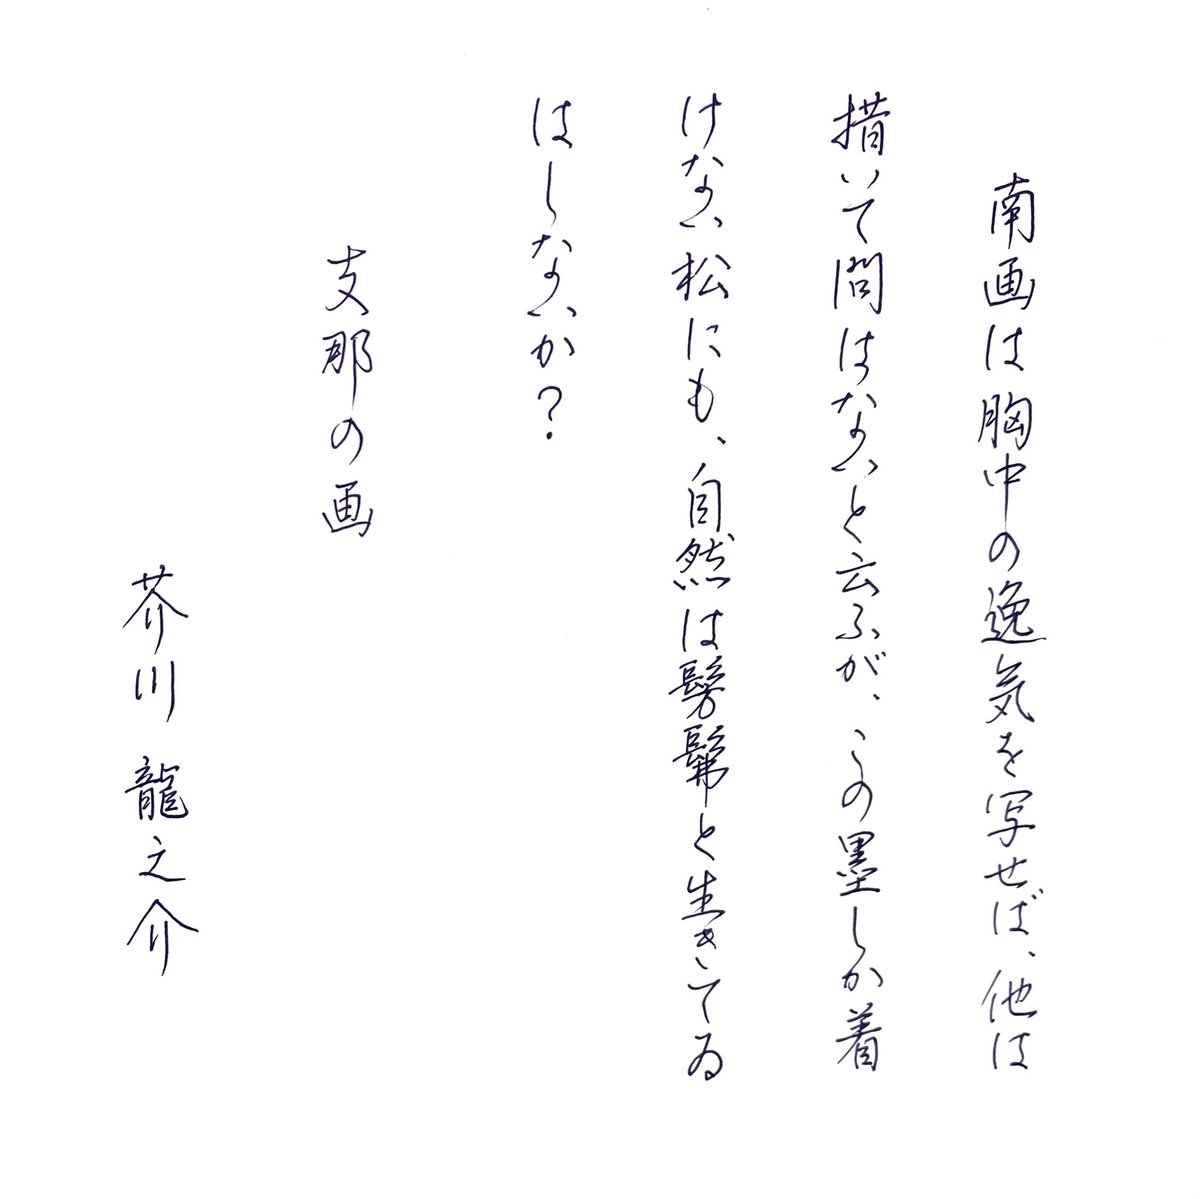 南画は胸中の逸気を写せば、他は
措いて問はないと云ふが、この墨しか着
けない松にも、自然は髣髴と生きてゐ
はしないか?
支那の画
芥川龍之介